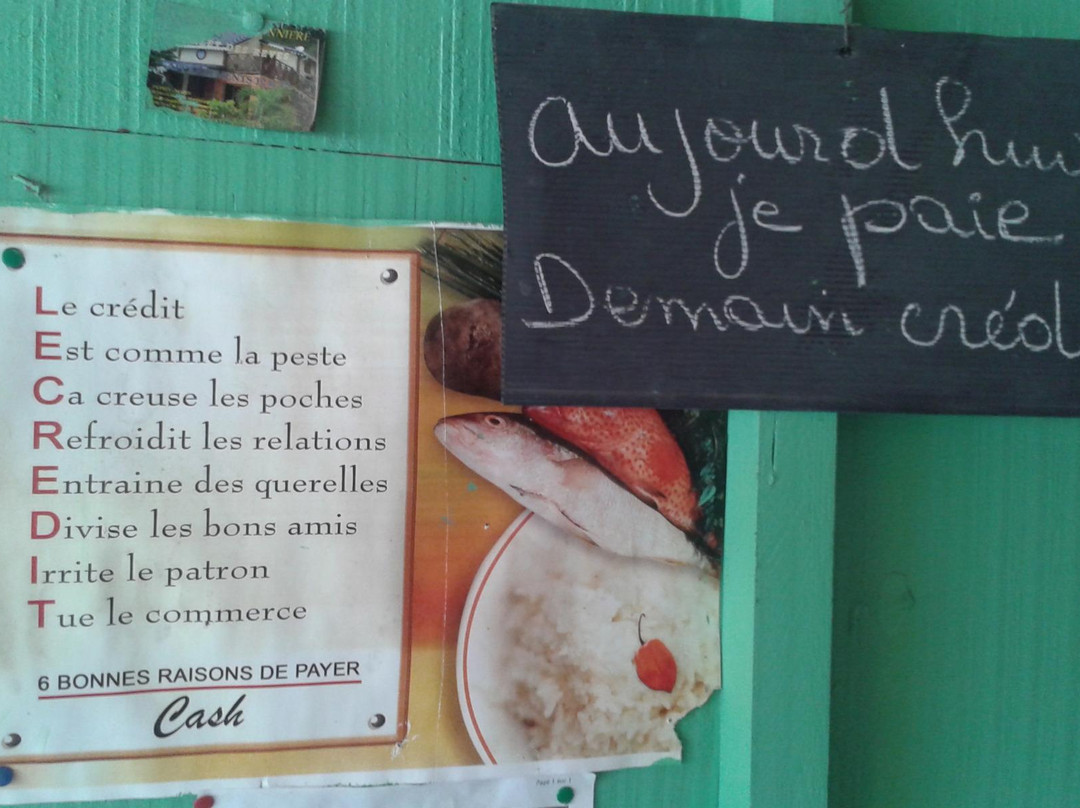 Aujourd'hui
je paie
Demain créd
Le crédit
Est comme la peste
Ca creuse les poches
Refroidit les relations
Entraine des querelles
Divise les bons amis
Irrite le patron
Tue le commerce
6 BONNES RAISONS DE PAYER
Cash